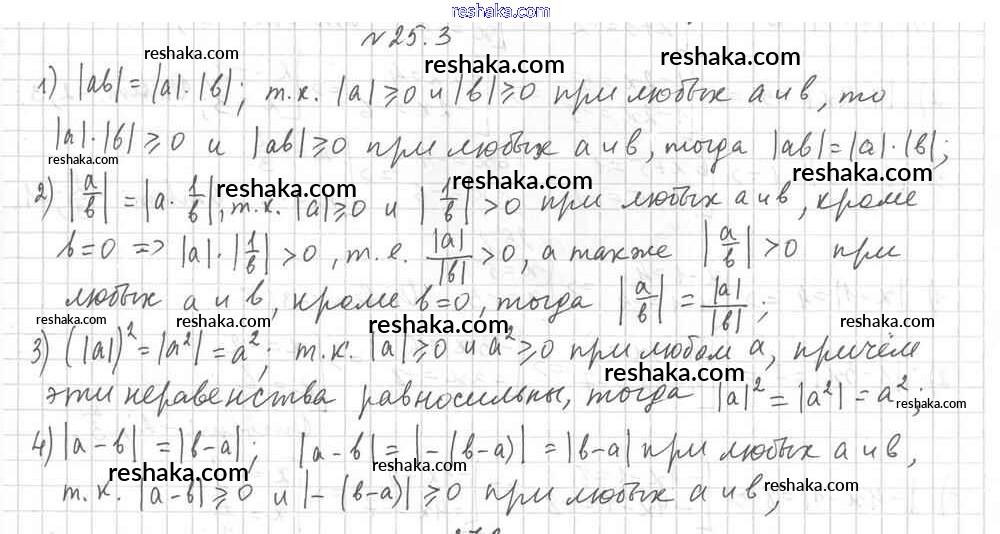 reshaka.com
№25.3
reshaka.com reshaka.com reshaka.com
1) |ab| = |a|·|b|; т.к. |a| ⩾ 0 и |b| ⩾ 0 при любых a и b, то
|a|·|b| ⩾ 0 и |ab| ⩾ 0 при любых a и b, тогда |ab| = |a|·|b|;
reshaka.com reshaka.com reshaka.com
2) |a/b| = |a · 1/b|, т.к. |a| ⩾ 0 и |1/b| > 0 при любых a и b, кроме
b = 0 => |a|·|1/b| > 0, т.е. |a|/|b| > 0, а также |a/b| > 0 при
любых a и b, кроме b = 0, тогда |a/b| = |a|/|b|;
reshaka.com reshaka.com reshaka.com reshaka.com
3) (|a|)² = |a²| = a²; т.к. |a| ⩾ 0 и a² ⩾ 0 при любом a, причём
reshaka.com
эти неравенства равносильны, тогда |a|² = |a²| = a²;
reshaka.com
4) |a - b| = |b - a|; |a - b| = |-(b - a)| = |b - a| при любых a и b,
reshaka.com reshaka.com reshaka.com
т.к. |a - b| ⩾ 0 и |-(b - a)| ⩾ 0 при любых a и b,